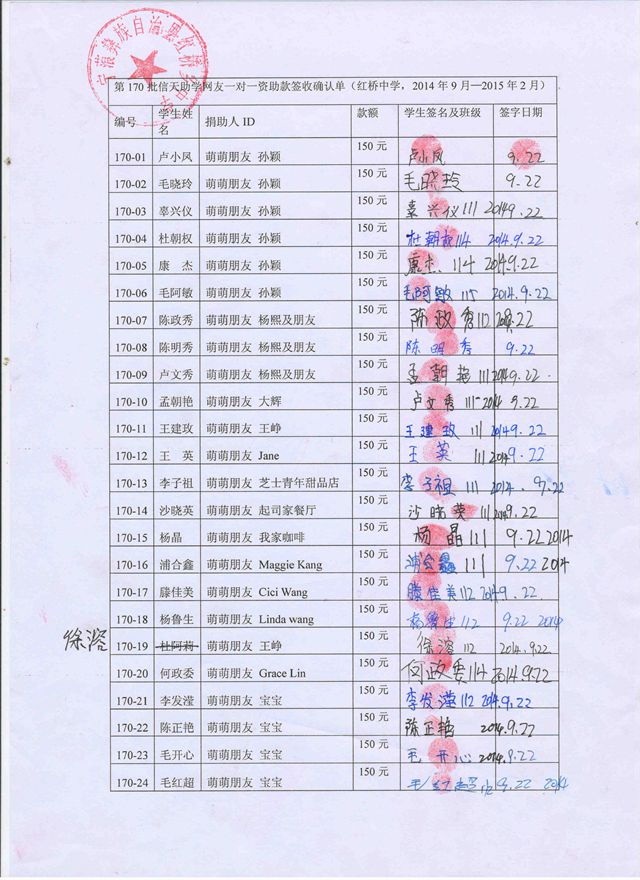 宁蒗彝族自治县红桥乡中学
第170批信天助学网友一对一资助款签收确认单（红桥中学，2014年9月—2015年2月）
编号 学生姓名 捐助人ID 款额 学生签名及班级 签字日期
170-01 卢小凤 萌萌朋友 孙颖 150元 卢小凤 9.22
170-02 毛晓玲 萌萌朋友 孙颖 150元 毛晓玲 9.22
170-03 辜兴仪 萌萌朋友 孙颖 150元 辜兴仪111 2014 9.22
170-04 杜朝权 萌萌朋友 孙颖 150元 杜朝权114 2014.9.22
170-05 康 杰 萌萌朋友 孙颖 150元 康杰 114 2014.9.22
170-06 毛阿敏 萌萌朋友 孙颖 150元 毛阿敏 115 2014.9.22
170-07 陈政秀 萌萌朋友 杨熙及朋友 150元 陈政秀112 9.22
170-08 陈明秀 萌萌朋友 杨熙及朋友 150元 陈明秀 9.22
170-09 卢文秀 萌萌朋友 杨熙及朋友 150元 孟朝艳 111 2014.9.22
170-10 孟朝艳 萌萌朋友 大辉 150元 卢文秀 115 2014 9.22
170-11 王建玫 萌萌朋友 王峥 150元 王建玫 111 2014 9.22
170-12 王 英 萌萌朋友 Jane 150元 王英 111 2014 9.22
170-13 李子祖 萌萌朋友 芝士青年甜品店 150元 李子祖 111 2014. 9.22
170-14 沙晓英 萌萌朋友 起司家餐厅 150元 沙晓英 111 2014.9.22
170-15 杨晶 萌萌朋友 我家咖啡 150元 杨晶 111 9.22 2014
170-16 浦合鑫 萌萌朋友 Maggie Kang 150元 浦合鑫 111 9.22 2014
170-17 滕佳美 萌萌朋友 Cici Wang 150元 滕佳美112 2014.9.22
170-18 杨鲁生 萌萌朋友 Linda wang 150元 杨鲁生 112 9.22 2014
徐溶 170-19 杜阿莉 萌萌朋友 王峥 150元 徐溶 112 2014.9.22
170-20 何政委 萌萌朋友 Grace Lin 150元 何政委114 2014.9.22
170-21 李发滢 萌萌朋友 宝宝 150元 李发滢112 2014.9.22
170-22 陈正艳 萌萌朋友 宝宝 150元 陈正艳 2014.9.22
170-23 毛开心 萌萌朋友 宝宝 150元 毛开心 2014.9.22
170-24 毛红超 萌萌朋友 宝宝 150元 毛红超 112 9.22 2014